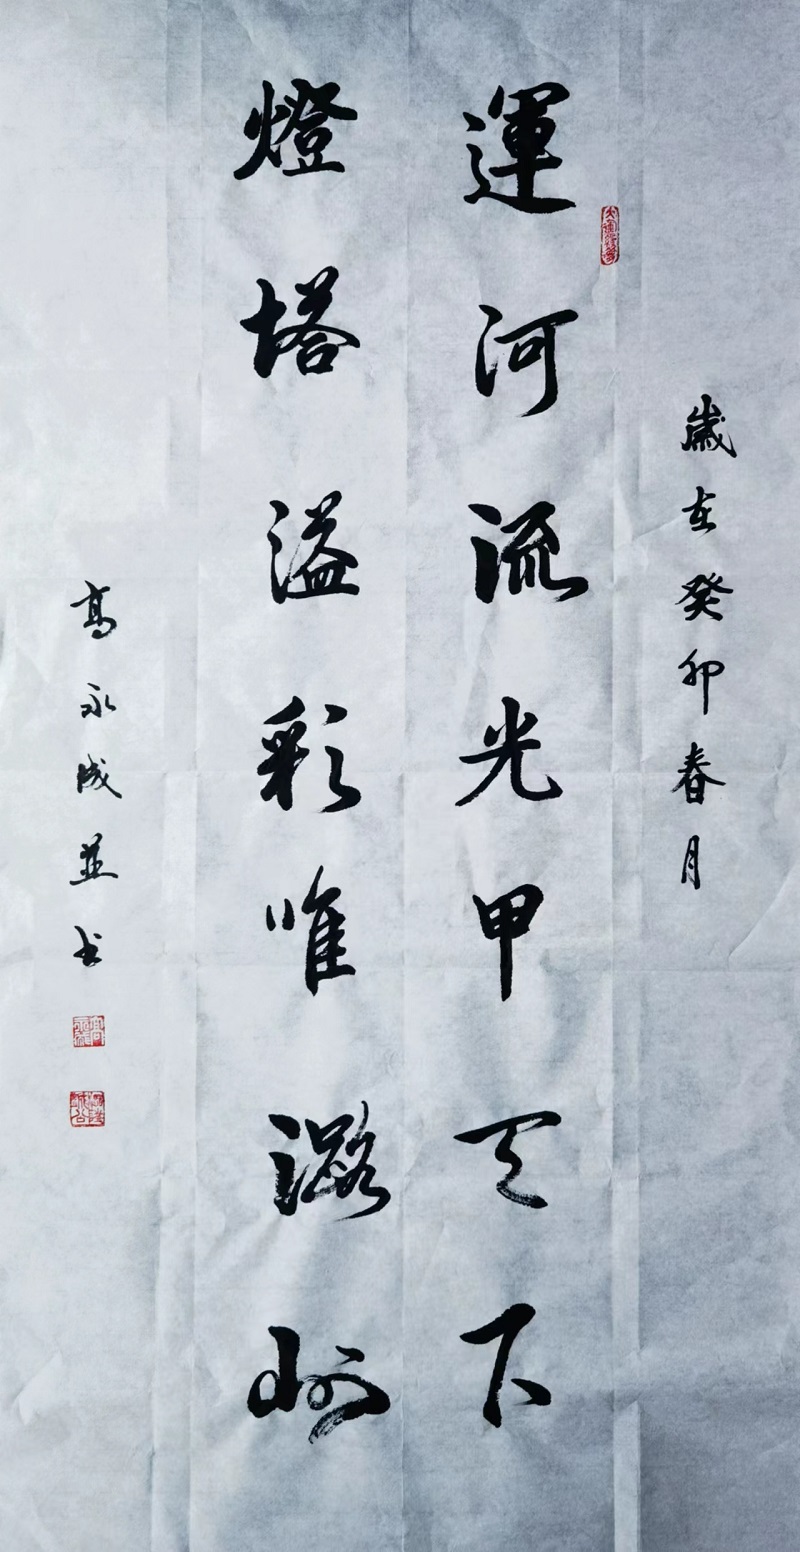 歲在癸卯春月
運河流光甲天下
燈塔溢彩唯潞州
高永成並书